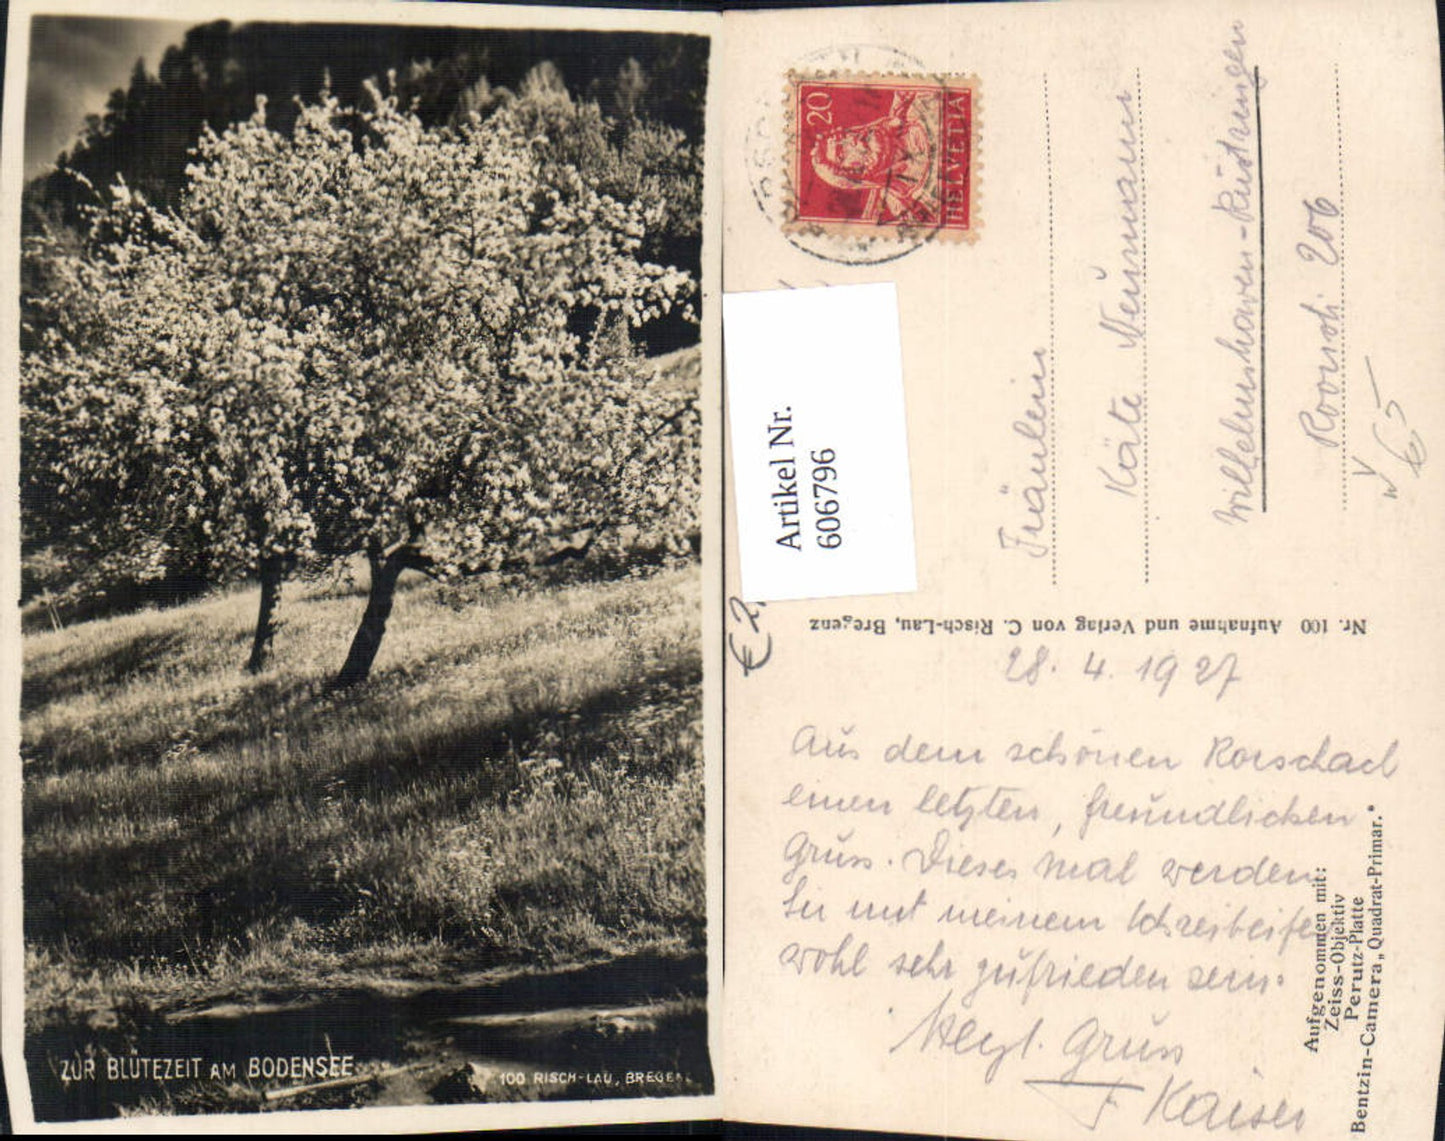 ZUR BLÜTEZEIT AM BODENSEE
100 RISCH-LAU, BREGENZ
20
HELVETIA
Artikel Nr.
606796
€ 2,
Fräulein
Käte Neumann
Wilhelmshaven-Rüstringen
Roonstr. 206
Nr. 100 Aufnahme und Verlag von C. Risch-Lau, Bregenz
28. 4. 1927
Aus dem schönen Rorschach
einen letzten, freundlichen
Gruss. Dieses Mal werden
Sie mit meinem Schreibeifer
wohl sehr zufrieden sein.
Herzl. Gruss
F Kaiser
Aufgenommen mit:
Zeiss-Objektiv
Perutz-Platte
Bentzin-Camera „Quadrat-Primar."